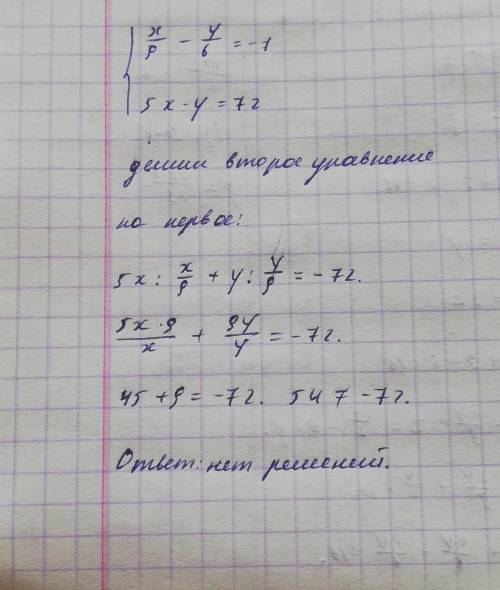 { x/9 - y/6 = -1
5x - y = 72
делим второе уравнение
на первое:
5x : x/9 + y : y/9 = -72.
5x·9/x + 9y/y = -72.
45 + 9 = -72. 54 ≠ -72.
Ответ: нет решений.